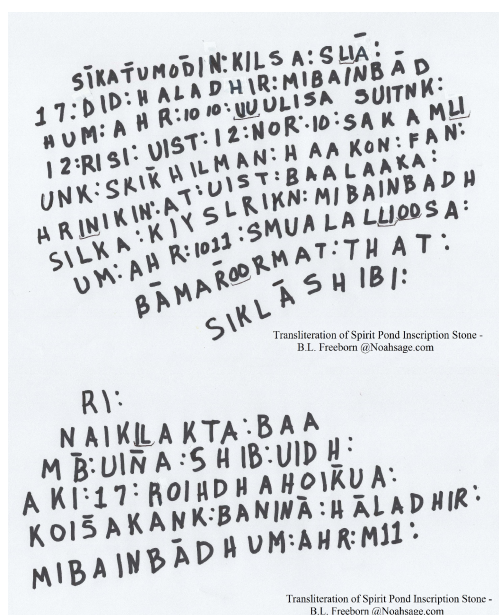 SĪKAT̄UMŌDIN:KILSA:SLIĀ:
17:DID:HALADHIR:MIBAINBĀD
HUM:AHR:1010:UUULISA SUITNK:
12:RISI:UIST:12:NOR:10:SAKAMLI
UNK:SKIK̄HILMAN:HAAKON:FAN:
HRINIKIN:AT:UIST:BAALAAKA:
SILKA:KIYSLRIKN:MIBAINBADH
UM:AHR:1011:SMUALALLIOOSA:
BĀMAR̄OORMAT:THAT:
SIKLĀSHIBI:
Transliteration of Spirit Pond Inscription Stone -
B.L. Freeborn @Noahsage.com
RI:
NAIKILAKTA:BAA
MB̄:UIN̄A:SHIB:UIDH:
AKI:17:ROIHDHAHOIK̄UA:
KOIS̄AKANK:BANINĀ:HĀLADHIR:
MIBAINBĀDHUM:AHR:M11:
Transliteration of Spirit Pond Inscription Stone -
B.L. Freeborn @Noahsage.com